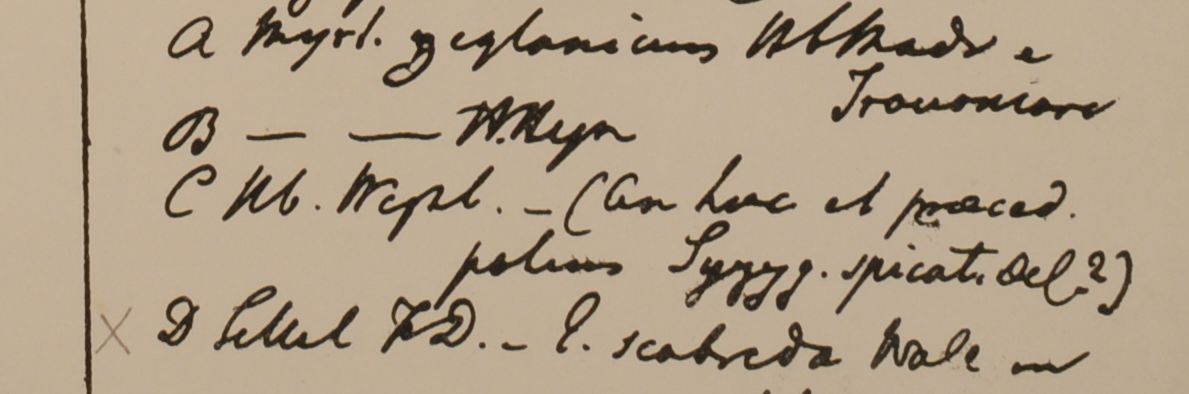 A Myrt. zeylanicum Hb Madr e
Travancore
B — — H. Heyn
C Hb. Wight. – (An haec et praeced.
potius Syzyg. spicat. Del ?)
D Silhet F.D. – E. scabrida Wall in